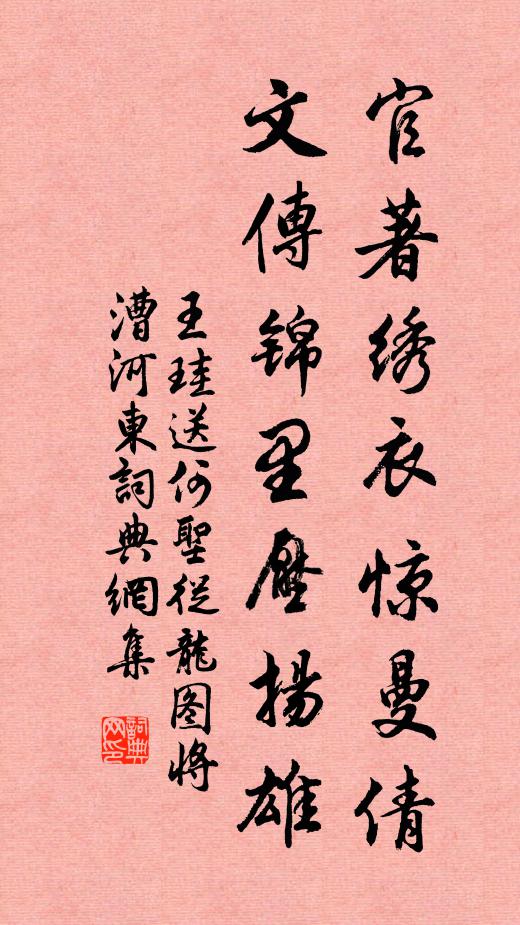 官著绣衣惊曼倩
文傳锦里壓揚雄
王珪送何聖從龍图將
漕河東詞典網集
詞典网印